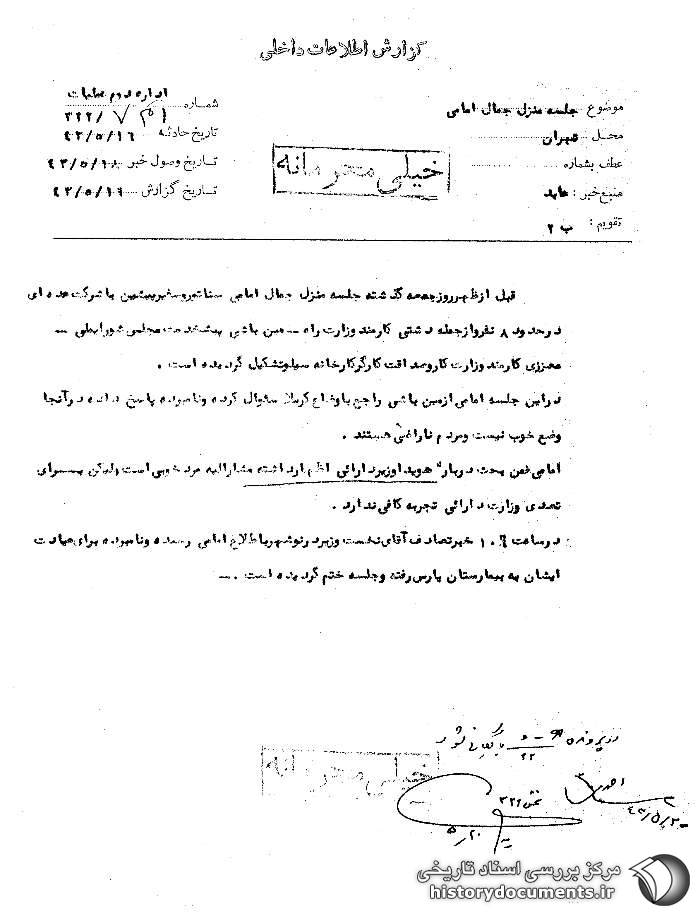 گزارش اطلاعات داخلی
موضوع جلسه منزل جمال امامی
محل تهران
عطف بشماره
منبع خبر : عابد
تقویم : ب ۲
اداره دوم عملیات
شماره ۳۲۲/
تاریخ حادثه ۴۳/۵/۱۶
تاریخ وصول خبر ۴۳/۵/۱۸
تاریخ گزارش
خیلی محرمانه
قبل از ظهر روز جمعه گذشته جلسه منزل جمال امامی سناتور و سفیر پیشین با شرکت عده ای
در حدود ۸ نفر و از جمله دشتی کارمند وزارت راه – مین باشی پیشخدمت مجلس شورایملی –
معززی کارمند وزارت کار و صداقت کارگر کارخانه سیلو تشکیل گردیده است .
در این جلسه امامی از مین باشی راجع باوضاع کربلا سئوال کرده و نامبرده پاسخ داده در آنجا
وضع خوب نیست و مردم ناراضی هستند .
امامی ضمن بحث درباره هویدا وزیر دارائی اظهار داشته مشارالیه مرد خوبی است لیکن برای
تصدی وزارت دارائی تجربه کافی ندارد .
در ساعت خبر تصادف آقای نخست وزیر در نوشهر باطلاع امامی رسیده و نامبرده برای عیادت
ایشان به بیمارستان پارس رفته و جلسه ختم گردیده است . –
در پرونده بایگانی شود
خیلی محرمانه
احمدی
بخش ۳۲۲
۵/۲۰
مرکز بررسی اسناد تاریخی
historydocuments.ir